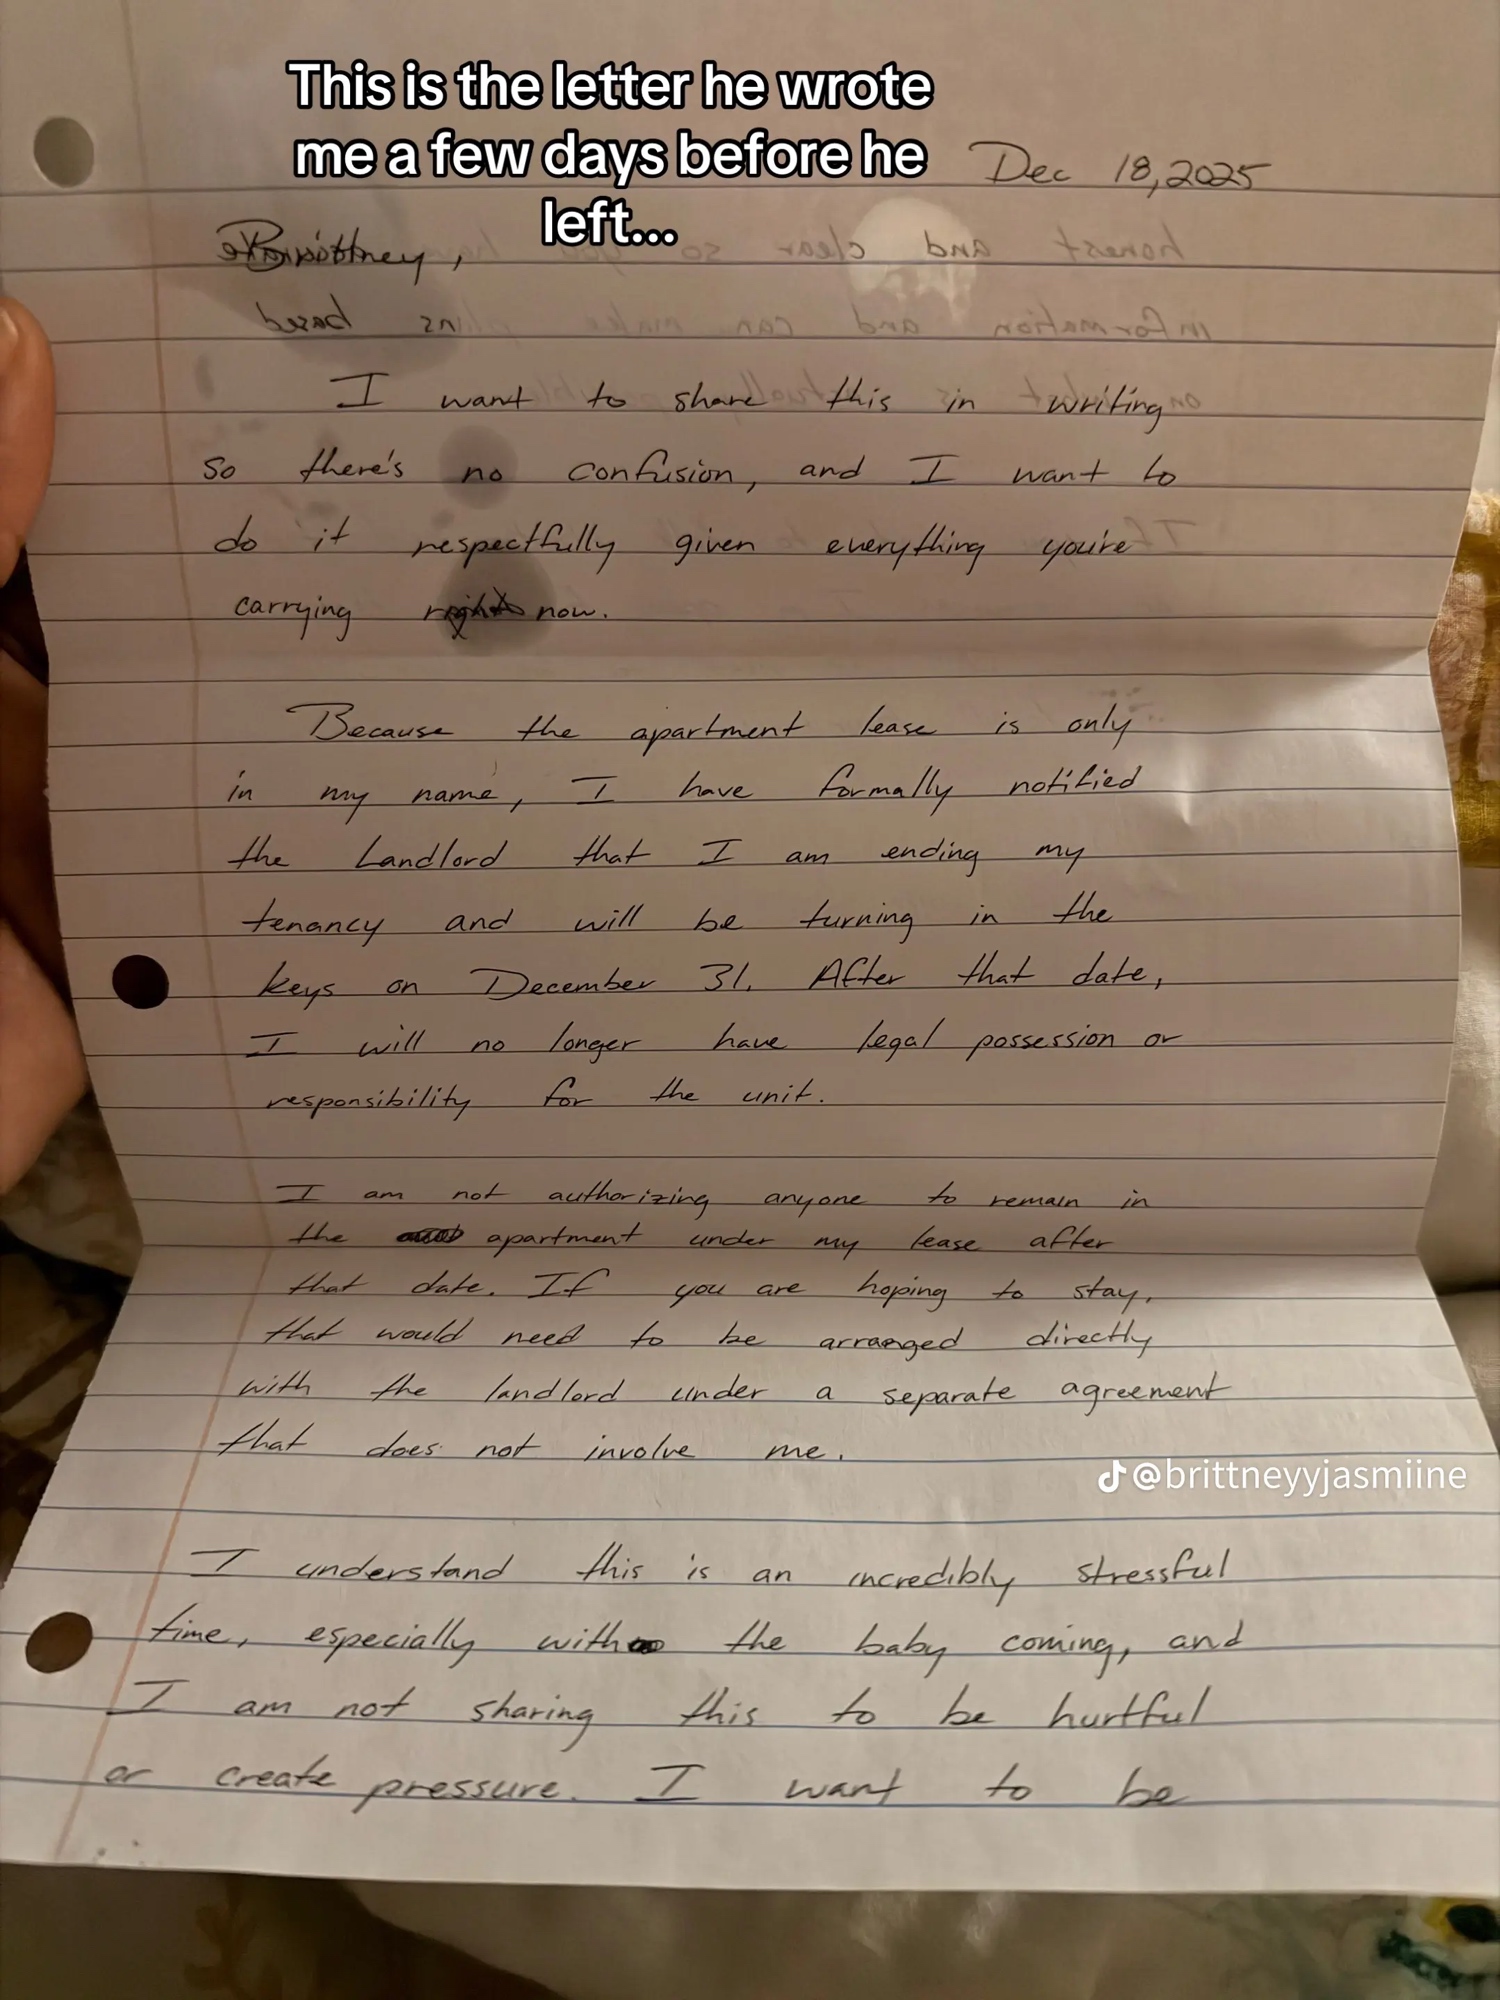 This is the letter he wrote
me a few days before he
left...
Dec 18, 2025
Brittney,
I want to share this in writing
so there's no confusion, and I want to
do it respectfully given everything you're
carrying right now.
Because the apartment lease is only
in my name, I have formally notified
the Landlord that I am ending my
tenancy and will be turning in the
keys on December 31. After that date,
I will no longer have legal possession or
responsibility for the unit.
I am not authorizing anyone to remain in
the apartment under my lease after
that date. If you are hoping to stay,
that would need to be arranged directly
with the landlord under a separate agreement
that does not involve me.
@brittneyyjasmiine
I understand this is an incredibly stressful
time, especially with the baby coming, and
I am not sharing this to be hurtful
or create pressure. I want to be